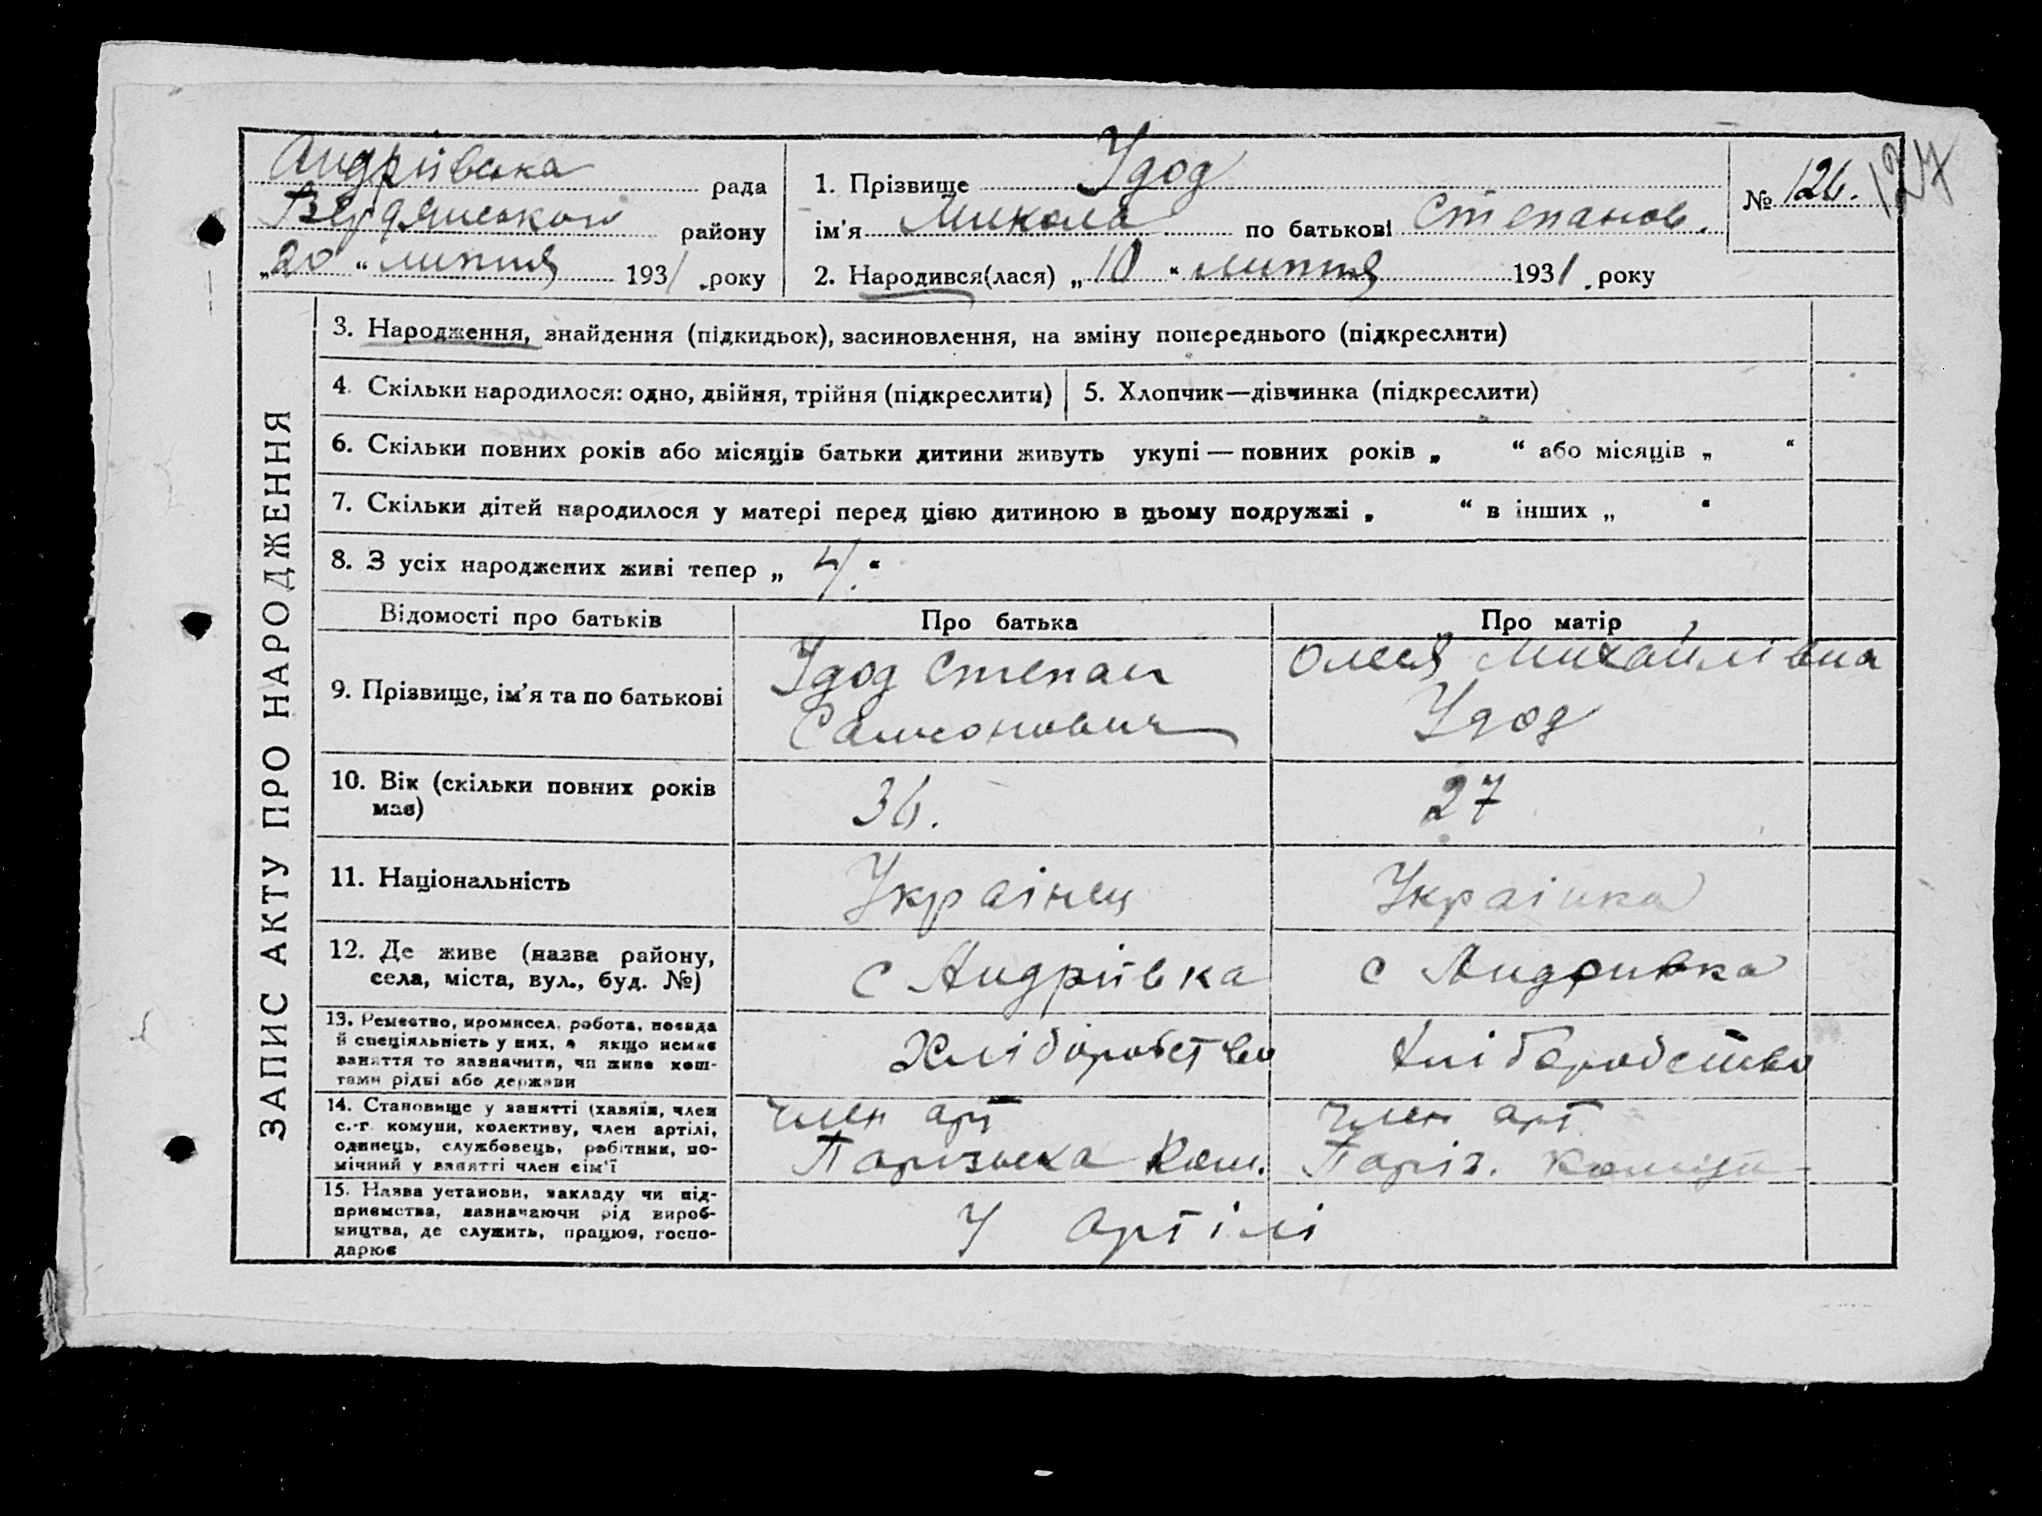 Андріівська рада
Бердянського району
„20“ липня 1931 року
1. Прізвище Удод
ім'я Микола по батькові Степанов.
2. Народився(лася) „10“ липня 1931 року
№ 126.
127
ЗАПИС АКТУ ПРО НАРОДЖЕННЯ
3. Народження, знайдення (підкидьок), засиновлення, на зміну попереднього (підкреслити)
4. Скільки народилося: одно, двійня, трійня (підкреслити)
5. Хлопчик—дівчинка (підкреслити)
6. Скільки повних років або місяців батьки дитини живуть укупі — повних років „ “ або місяців „ “
7. Скільки дітей народилося у матері перед цією дитиною в цьому подружжі „ “ в інших „ “
8. З усіх народжених живі тепер „ 4. “
Відомості про батьків
Про батька
Про матір
9. Прізвище, ім'я та по батькові
Удод Степан
Самсонович
Олеся Михайлівна
Удод
10. Вік (скільки повних років
має)
36.
27
11. Національність
Украінец
Украінка
12. Де живе (назва району,
села, міста, вул., буд. №)
с Андріівка
с Андриівка
13. Ремество, промисел, робота, посада
й спеціяльність у них, а якщо немає
заняття то зазначити, чи живе кош-
тами рідні або держави
Хліборобство
Хліборобство
14. Становище у занятті (хазяїн, член
с.-г. комуни, колективу, член артілі,
одинець, службовець, робітник, по-
мічний у занятті член сім'ї
член арт
Паризька Ком.
член арт
Паріз. Комуни
15. Назва установи, закладу чи під-
приємства, зазначаючи рід вироб-
ництва, де служить, працює, госпо-
дарює
У артілі